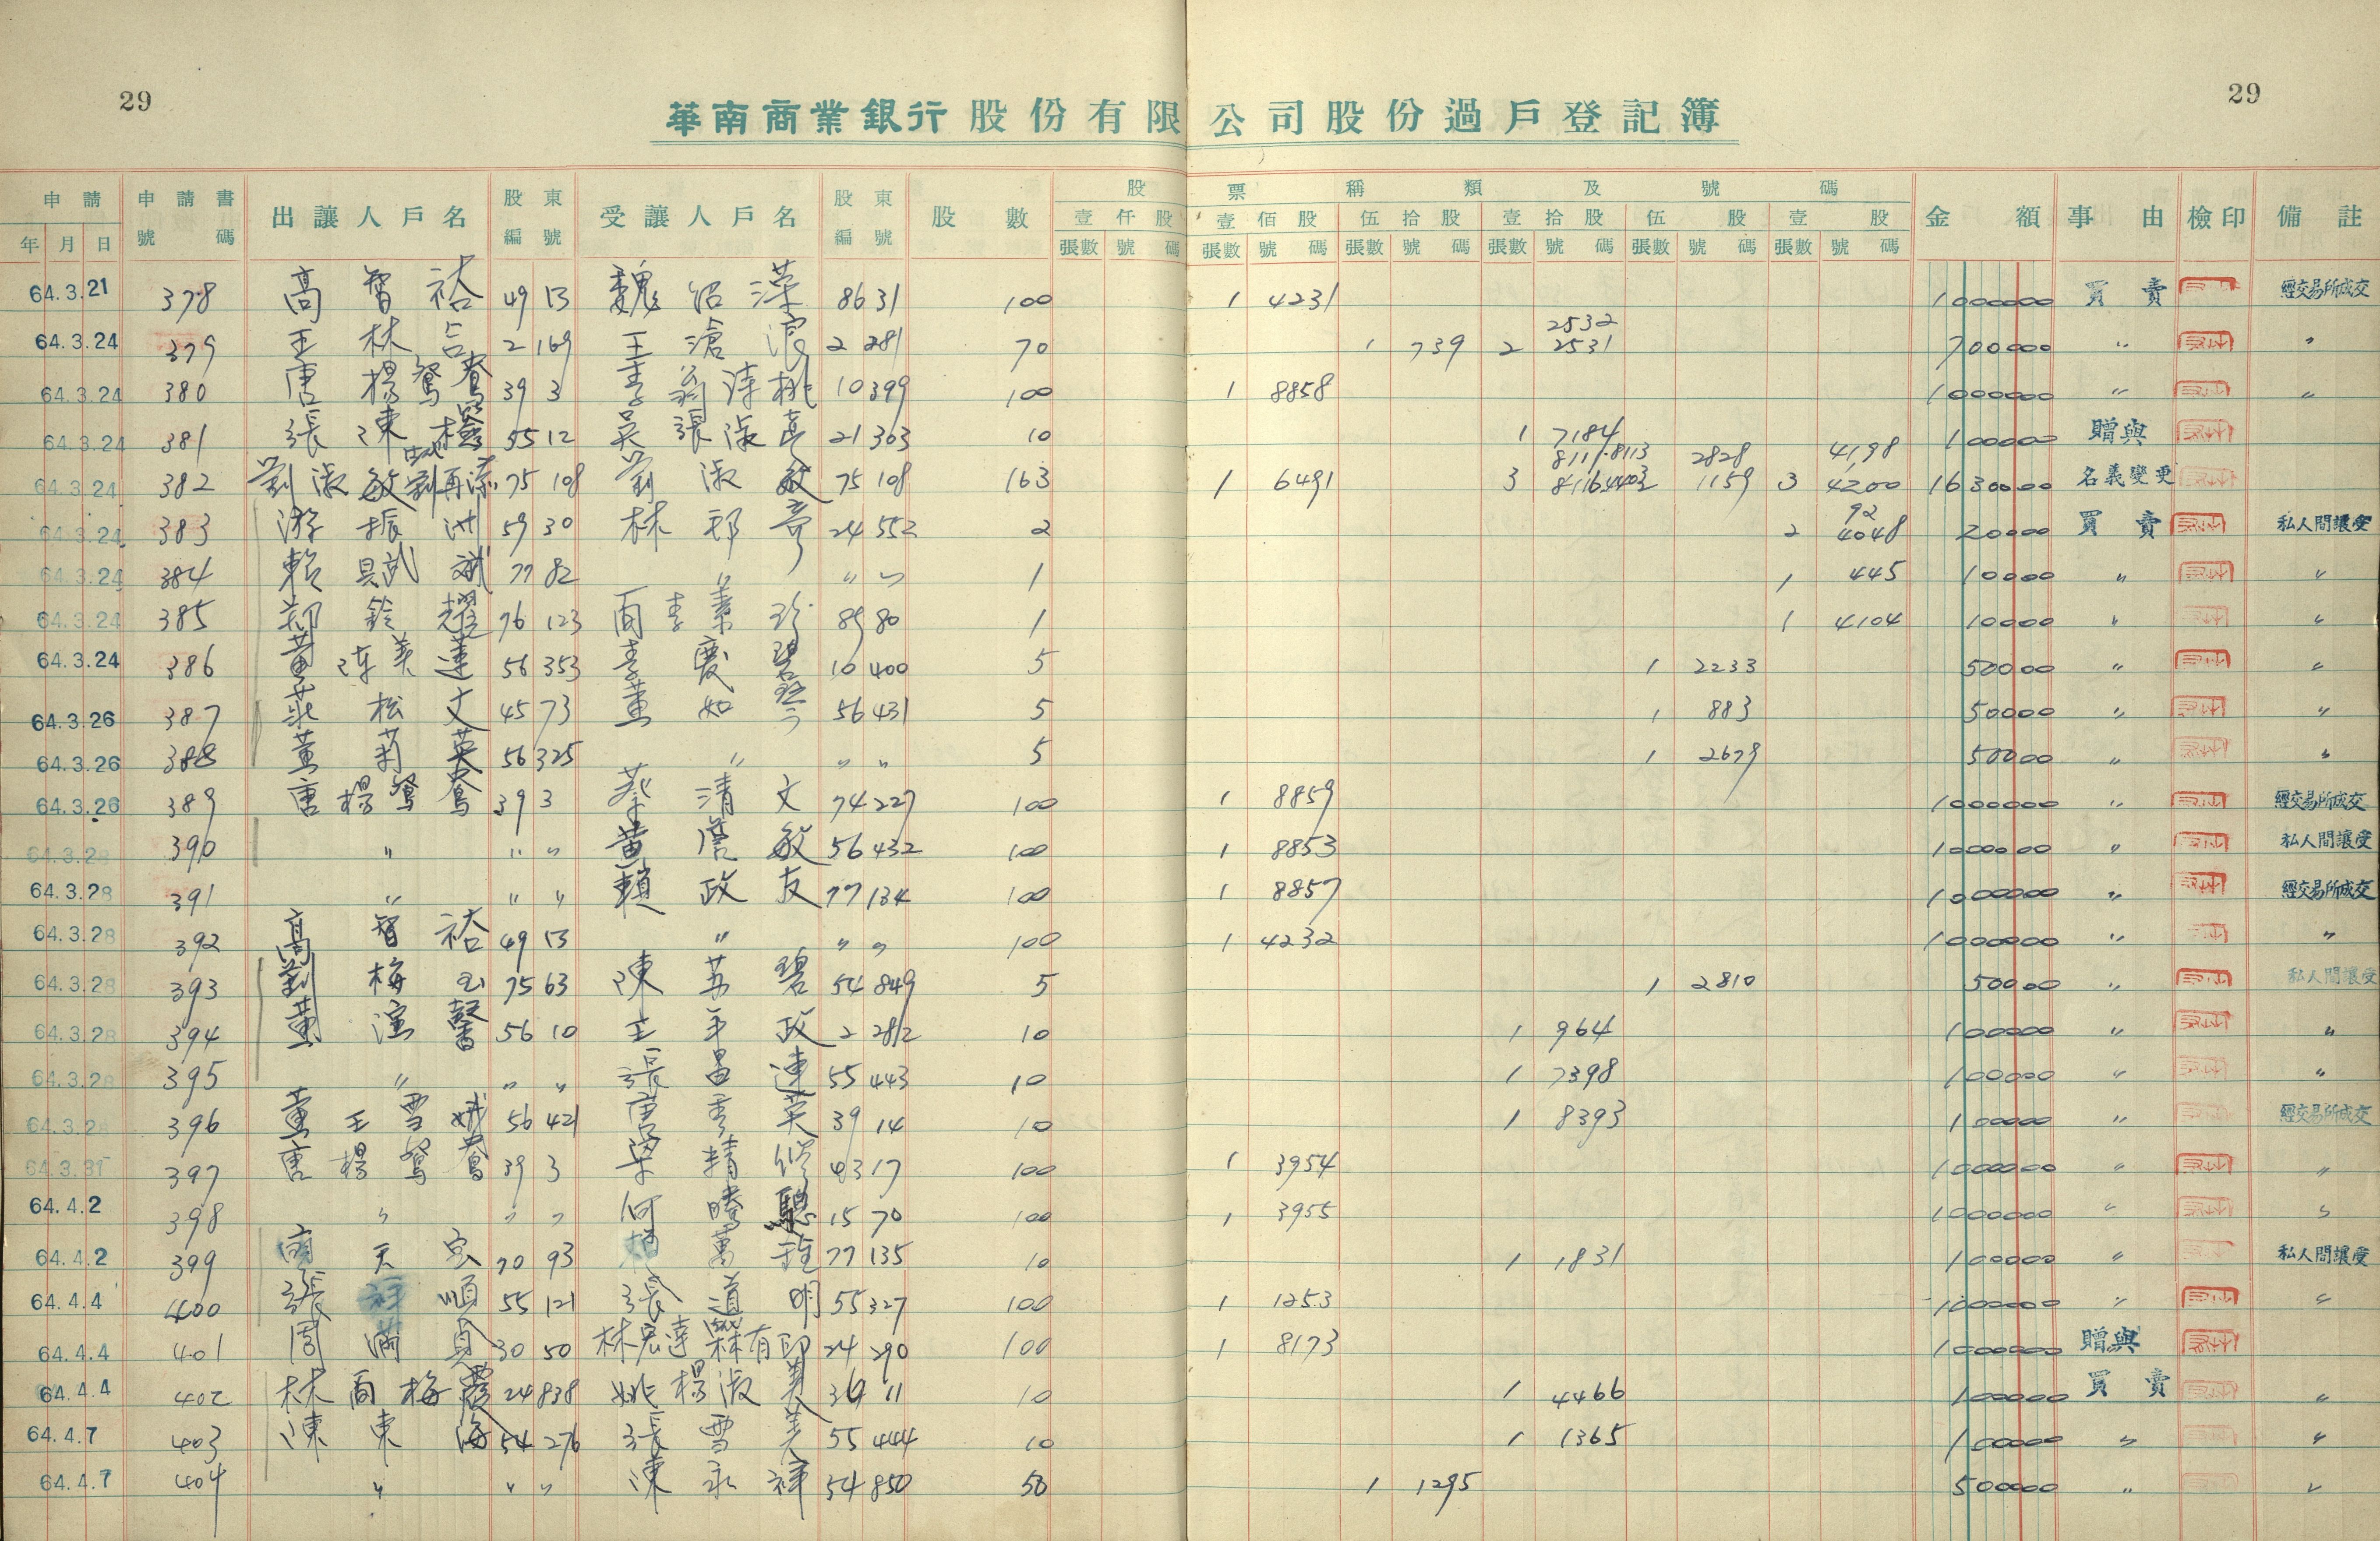 29 29
華南商業銀行股份有限公司股份過戶登記簿
申請 申請書 出讓人戶名 股東 受讓人戶名 股東 股數 股票種類及號碼 金額 事由 檢印 備註
年 月 日 號碼 編號 編號 壹仟股 壹佰股 伍拾股 壹拾股 伍股 壹股
張數 號碼 張數 號碼 張數 號碼 張數 號碼 張數 號碼 張數 號碼
64.3.21 378 高智祐 49 13 魏 8631 100 1 4231 1000000 買賣 經交易所成交
2532
64.3.24 379 王林 2 169 王滄浪 2 281 70 1 739 2 2531 700000 〃 〃
64.3.24 380 唐楊鴛鴦 39 3 李翁 10 399 100 1 8858 1000000 〃 〃
64.3.24 381 張陳 55 12 吳張淑 21 363 10 1 7184 100000 贈與
8111.8113 2828 4198
64.3.24 382 劉淑敏 劉再添 75 108 劉淑敏 75 108 163 1 6491 3 1159 3 4200 1630000 名義變更
92
64.3.24 383 游振洲 59 30 林 24 552 2 2 4048 20000 買賣 私人間讓受
64.3.24 384 賴 斌 77 82 〃 〃 〃 1 1 445 10000 〃 〃
64.3.24 385 鄭鈴耀 76 123 李 89 80 1 1 4104 10000 〃 〃
64.3.24 386 黃陳美蓮 56 353 李慶碧 10 400 5 1 2233 50000 〃 〃
64.3.26 387 莊松文 45 73 董如琴 56 431 5 1 883 50000 〃 〃
64.3.26 388 董莉英 56 325 〃 〃 〃 5 1 2679 50000 〃 〃
64.3.26 389 唐楊鴛鴦 39 3 蔡清文 74 227 100 1 8859 1000000 〃 經交易所成交
64.3.28 390 〃 〃 〃 黃 敏 56 432 100 1 8853 1000000 〃 私人間讓受
64.3.28 391 〃 〃 〃 賴政友 77 134 100 1 8857 1000000 〃 經交易所成交
64.3.28 392 高智祐 49 13 〃 〃 〃 100 1 4232 1000000 〃 〃
64.3.28 393 劉梅玉 75 63 陳 碧 54 849 5 1 2810 50000 〃 私人間讓受
64.3.28 394 黃 馨 56 10 王 政 2 282 10 1 964 100000 〃 〃
64.3.28 395 〃 〃 〃 張昌連 55 443 10 1 7398 100000 〃 〃
64.3.28 396 董王雪娥 56 421 唐秀英 39 14 10 1 8393 100000 〃 經交易所成交
64.3.31 397 唐楊鴛鴦 39 3 梁精修 43 17 100 1 3954 1000000 〃 〃
64.4.2 398 〃 〃 〃 何聰 15 70 100 1 3955 1000000 〃 〃
64.4.2 399 天 70 93 萬 77 135 10 1 1831 100000 〃 私人間讓受
64.4.4 400 張 順 55 121 張道明 55 327 100 1 1253 1000000 〃 〃
64.4.4 401 周 貞 30 50 林宏達 林有印 24 290 100 1 8173 1000000 贈與
64.4.4 402 林商梅霞 24 838 姚楊淑美 36 11 10 1 4466 100000 買賣 〃
64.4.7 403 陳東海 54 276 張雪美 55 444 10 1 1365 100000 〃 〃
64.4.7 404 〃 〃 〃 陳永祥 54 850 50 1 1295 500000 〃 〃